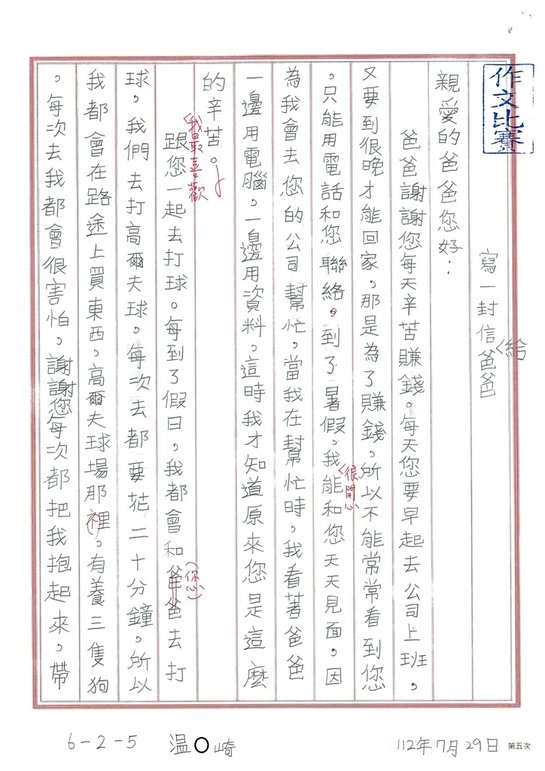 作文比賽
寫一封信給爸爸
親愛的爸爸您好：
爸爸謝謝您每天辛苦賺錢。每天您要早起去公司上班，
又要到很晚才能回家，那是為了賺錢，所以不能常常看到您
，只能用電話和您聯絡。到了暑假，我很開心能和您天天見面，因
為我會去您的公司幫忙，當我在幫忙時，我看著爸爸
一邊用電腦，一邊用資料，這時我才知道原來您是這麼
的辛苦。
我最喜歡跟您一起去打球。每到了假日，我都會和爸爸(您)去打
球，我們去打高爾夫球，每次去都要花二十分鐘，所以
我都會在路途上買東西，高爾夫球場那裡，有養三隻狗
，每次去我都會很害怕，謝謝您每次都把我抱起來，帶
6-2-5 溫○崎 112年7月29日 第五次